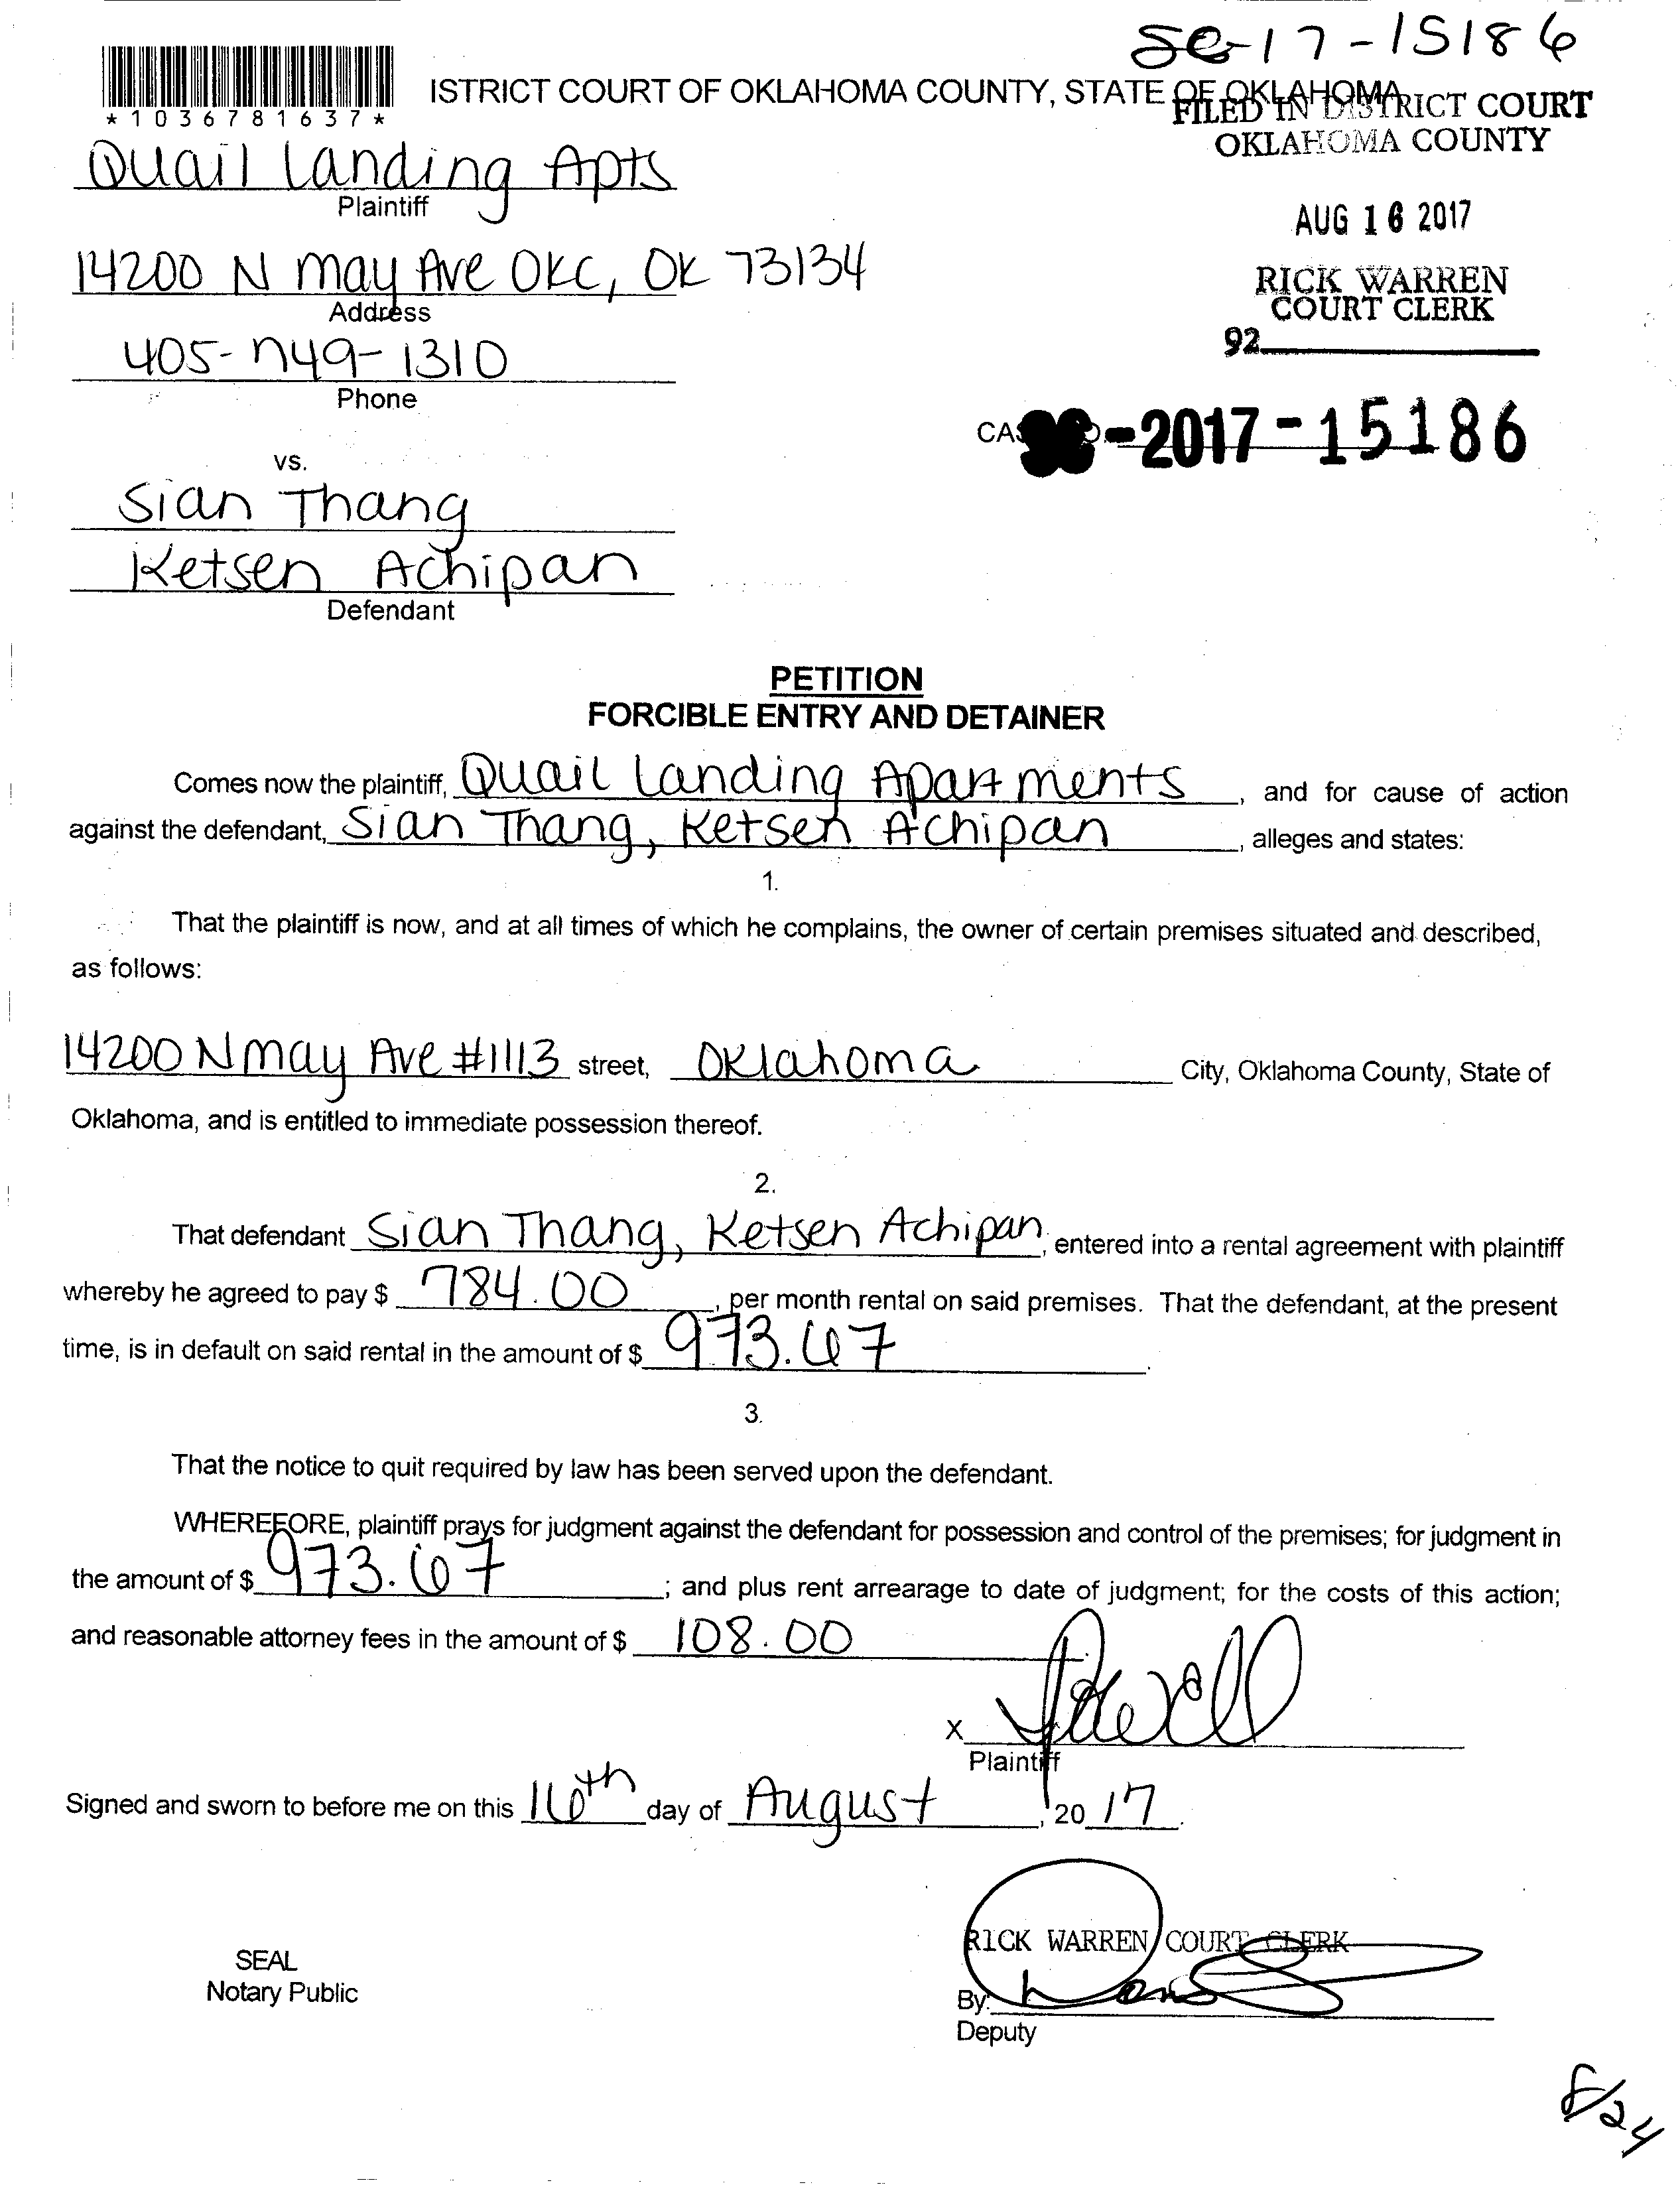 SC-17-15186
*1036781637*
ISTRICT COURT OF OKLAHOMA COUNTY, STATE OF OKLAHOMA
FILED IN DISTRICT COURT
OKLAHOMA COUNTY
Quail Landing Apts
Plaintiff
AUG 16 2017
14200 N May Ave OKC, OK 73134
Address
RICK WARREN
COURT CLERK
92
405-749-1310
Phone
-2017-15186
vs.
Sian Thang
Ketsen Achipan
Defendant
PETITION
FORCIBLE ENTRY AND DETAINER
Comes now the plaintiff, Quail Landing Apartments, and for cause of action
against the defendant, Sian Thang, Ketsen Achipan, alleges and states:
1.
That the plaintiff is now, and at all times of which he complains, the owner of certain premises situated and described,
as follows:
14200 N May Ave #1113 street, Oklahoma City, Oklahoma County, State of
Oklahoma, and is entitled to immediate possession thereof.
2.
That defendant Sian Thang, Ketsen Achipan, entered into a rental agreement with plaintiff
whereby he agreed to pay $ 784.00, per month rental on said premises. That the defendant, at the present
time, is in default on said rental in the amount of $ 973.67.
3.
That the notice to quit required by law has been served upon the defendant.
WHEREFORE, plaintiff prays for judgment against the defendant for possession and control of the premises; for judgment in
the amount of $ 973.67; and plus rent arrearage to date of judgment; for the costs of this action;
and reasonable attorney fees in the amount of $ 108.00
X
Plaintiff
Signed and sworn to before me on this 16th day of August, 20 17.
RICK WARREN COURT CLERK
SEAL
Notary Public
By:
Deputy
8/24